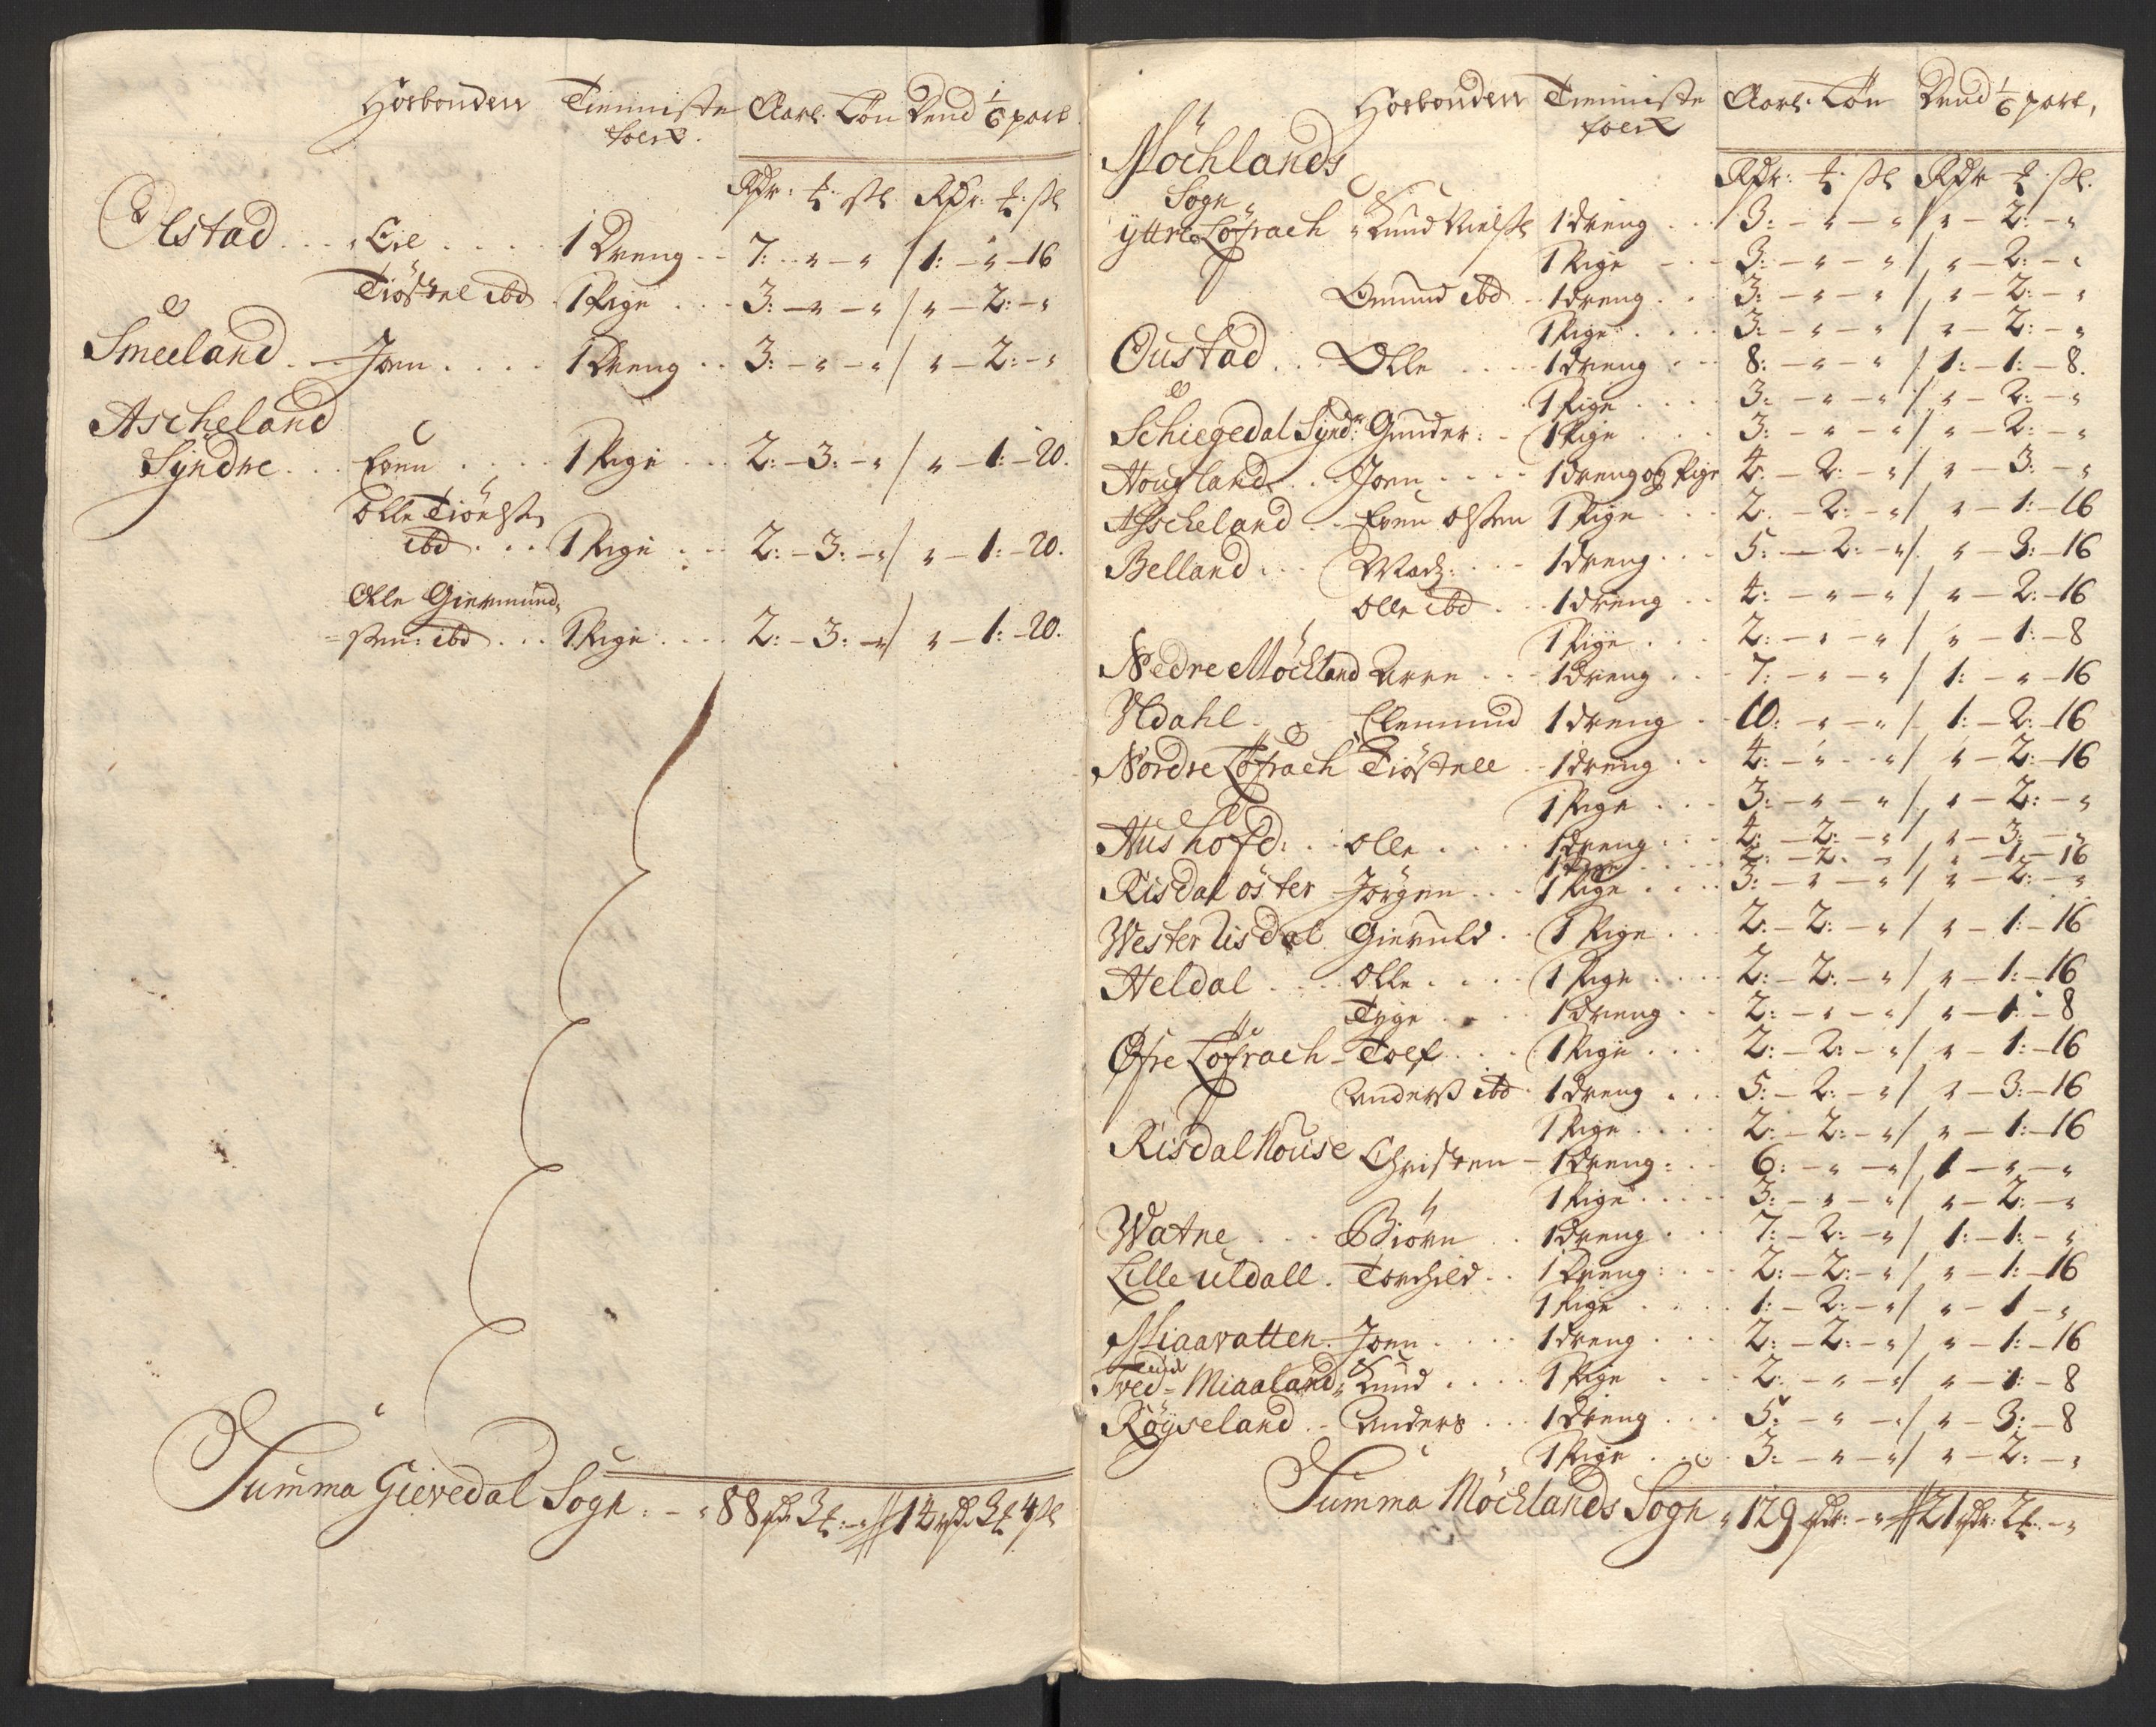 Hosbonden Tienniste Aarl. Løn Dend 1/6 part
folck.
Rdr: ℔. ß Rdr: ℔: ß
Olstad... Eil.... 1 Dreng.. 7: - " - " / 1: - " - 16
Tiøstel ibd. 1 Pige... 3: - " - " / " - 2: - "
Smeeland.. Joen.... 1 Dreng.. 3: - " - " / " - 2: - "
Ascheland
Syndre... Even.... 1 Pige... 2: - 3: - " / " - 1: - 20.
Olle Tiønst
ibd... 1 Pige... 2: - 3: - " / " - 1: - 20.
Olle Giermund
sten: ibd... 1 Pige.... 2: - 3: - " / " - 1: - 20.
Summa Gievedal Sogn: - " 88 rdr 3 ℔: - " // 14 rdr 3 ℔ 4 ß
Hosbonden Tienniste Aarl: Løn Dend 1/6 part,
folck
Møchlands
Sogn
Rdr: ℔. ß Rdr ℔. ß.
yttre Løfrach " Knud Nielß 1 dreng.. 3: - " - " / " - 2: - "
1 Pige... 3: - " - " / " - 2: - "
Omund ibd.. 1 dreng.. 3: - " - " / " - 2: - "
1 Pige.... 3: - " - " / " - 2: - "
Oustad... Olle.... 1 dreng... 8: - " - " / 1: - 1: - 8.
1 Pige.... 3: - " - " / " - 2: - "
Schiegedal Synd: Gunder:. 1 Pige... 3: - " - " / " - 2: - "
Hougland... Joen.... 1 dreng og Pige 4: - 2: - " / " - 3: - "
Ascheland.. Even Olsten 1 Pige... 2: - 2: - " / " - 1: - 16
Belland... Madz.... 1 dreng... 5: - 2: - " / " - 3: - 16
Olle ibd.. 1 dreng.. 4: - " - " / " - 2: - 16
1 Pige... 2: - " - " / " - 1: - 8
Nedre Møchland Arne... 1 dreng... 7: - " - " / 1: - " - 16
Udahl.. Clemmund 1 dreng. 10: - " - " / 1: - 2: - 16
Nordre Løfrach Tiøstell.. 1 dreng.. 4: - " - " / " - 2: - 16
1 Pige... 3: - " - " / " - 2: - "
Hushofd:.. Olle.... 1 dreng... 4: - 2: - " " - 3: - "
1 Pige.... 2: - 2: - " " - 1 - 16
Risdal øster Jørgen.. 1 Pige.... 3: - " - " / " - 2: - "
Wester Risdal Gieruld.. 1 Pige... 2: - 2: - " / " - 1: - 16
Heldal.... Olle.... 1 Pige.... 2: - 2: - " / " - 1: - 16
Tyge.... 1 dreng.. 2: - " - " / " - 1: - 8
Øfre Løfrach - Toef... 1 Pige... 2: - 2: - " / " - 1: - 16
Anderß ibd. 1 dreng... 5: - 2: - " / " - 3: - 16
1 Pige.... 2: - 2: - " / " - 1: - 16
Risdal Nouse Christen - 1 dreng:.. 6: - " - " / 1 - " - "
1 Pige.... 3: - " - " / " - 2: - "
Watne... Biørn.. 1 dreng.. 7: - 2: - " / 1: - 1: - "
Lille uldall. Torchild.. 1 Dreng:... 2: - 2: - " / " - 1: - 16
1 Pige.... 1: - 2: - " / " - 1 - "
Miaavatten. Joen.... 1 dreng... 2: - 2: - " / " - 1: - 16
Tved = Miaaland " Knud.... 1 Pige... 2: - " - " / " - 1: - 8
Røyseland.. Anders... 1 dreng... 5: - " - " / " - 3: - 8
1 Pige.... 3: - " - " / " - 2: - "
Summa Møchlands Sogn " 129 rdr: - " // 21 rdr: 2 ℔: - "